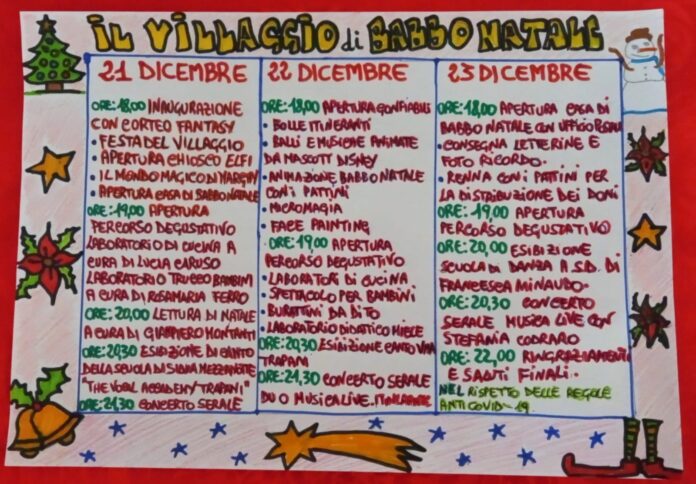 IL VILLAGGIO di BABBO NATALE
21 DICEMBRE
ORE: 18,00 INAUGURAZIONE
CON CORTEO FANTASY
• FESTA DEL VILLAGGIO
• APERTURA CHIOSCO ELFI
• IL MONDO MAGICO DI
• APERTURA CASA DI BABBO NATALE
ORE: 19,00 APERTURA
PERCORSO DEGUSTATIVO
LABORATORIO DI CUCINA A
CURA DI LUCIA CARUSO
LABORATORIO TRUCCO BAMBINI
A CURA DI ROSAMARIA FERRO
ORE: 20,00 LETTURA DI NATALE
A CURA DI GIAMPIERO MONTANTI
ORE: 20,30 ESIBIZIONE DI CANTO
DELLA SCUOLA DI SILVIA MEZZANOTTE
"THE VOCAL ACCADEMY TRAPANI"
ORE: 21,30 CONCERTO SERALE
22 DICEMBRE
ORE: 18,00 APERTURA GONFIABILI
• BOLLE ITINERANTI
• BALLI E MUSICHE ANIMATE
DA MASCOTT DISNEY
• ANIMAZIONE BABBO NATALE
CON I PATTINI
• MICROMAGIA
• FACE PAINTING
ORE: 19,00 APERTURA
PERCORSO DEGUSTATIVO
• LABORATORI DI CUCINA
• SPETTACOLO PER BAMBINI
• BURATTINI DA DITO
• LABORATORIO DIDATTICO MIELE
ORE: 20,30 ESIBIZIONE CANTO
TRAPANI
ORE: 21,30 CONCERTO SERALE
DUO MUSICA LIVE. ITINERANTE
23 DICEMBRE
ORE: 18,00 APERTURA CASA DI
BABBO NATALE CON UFFICIO POSTALE
• CONSEGNA LETTERINE E
FOTO RICORDO.
• RENNA CON I PATTINI PER
LA DISTRIBUZIONE DEI DONI
ORE: 19,00 APERTURA
PERCORSO DEGUSTATIVO
ORE: 20,00 ESIBIZIONE
SCUOLA DI DANZA A.S.D. DI
FRANCESCA MINAUDO
ORE: 20,30 CONCERTO
SERALE MUSICA LIVE CON
STEFANIA CODRARO
ORE: 22,00 RINGRAZIAMENTI
E SALUTI FINALI..
NEL RISPETTO DELLE REGOLE
ANTI COVID-19